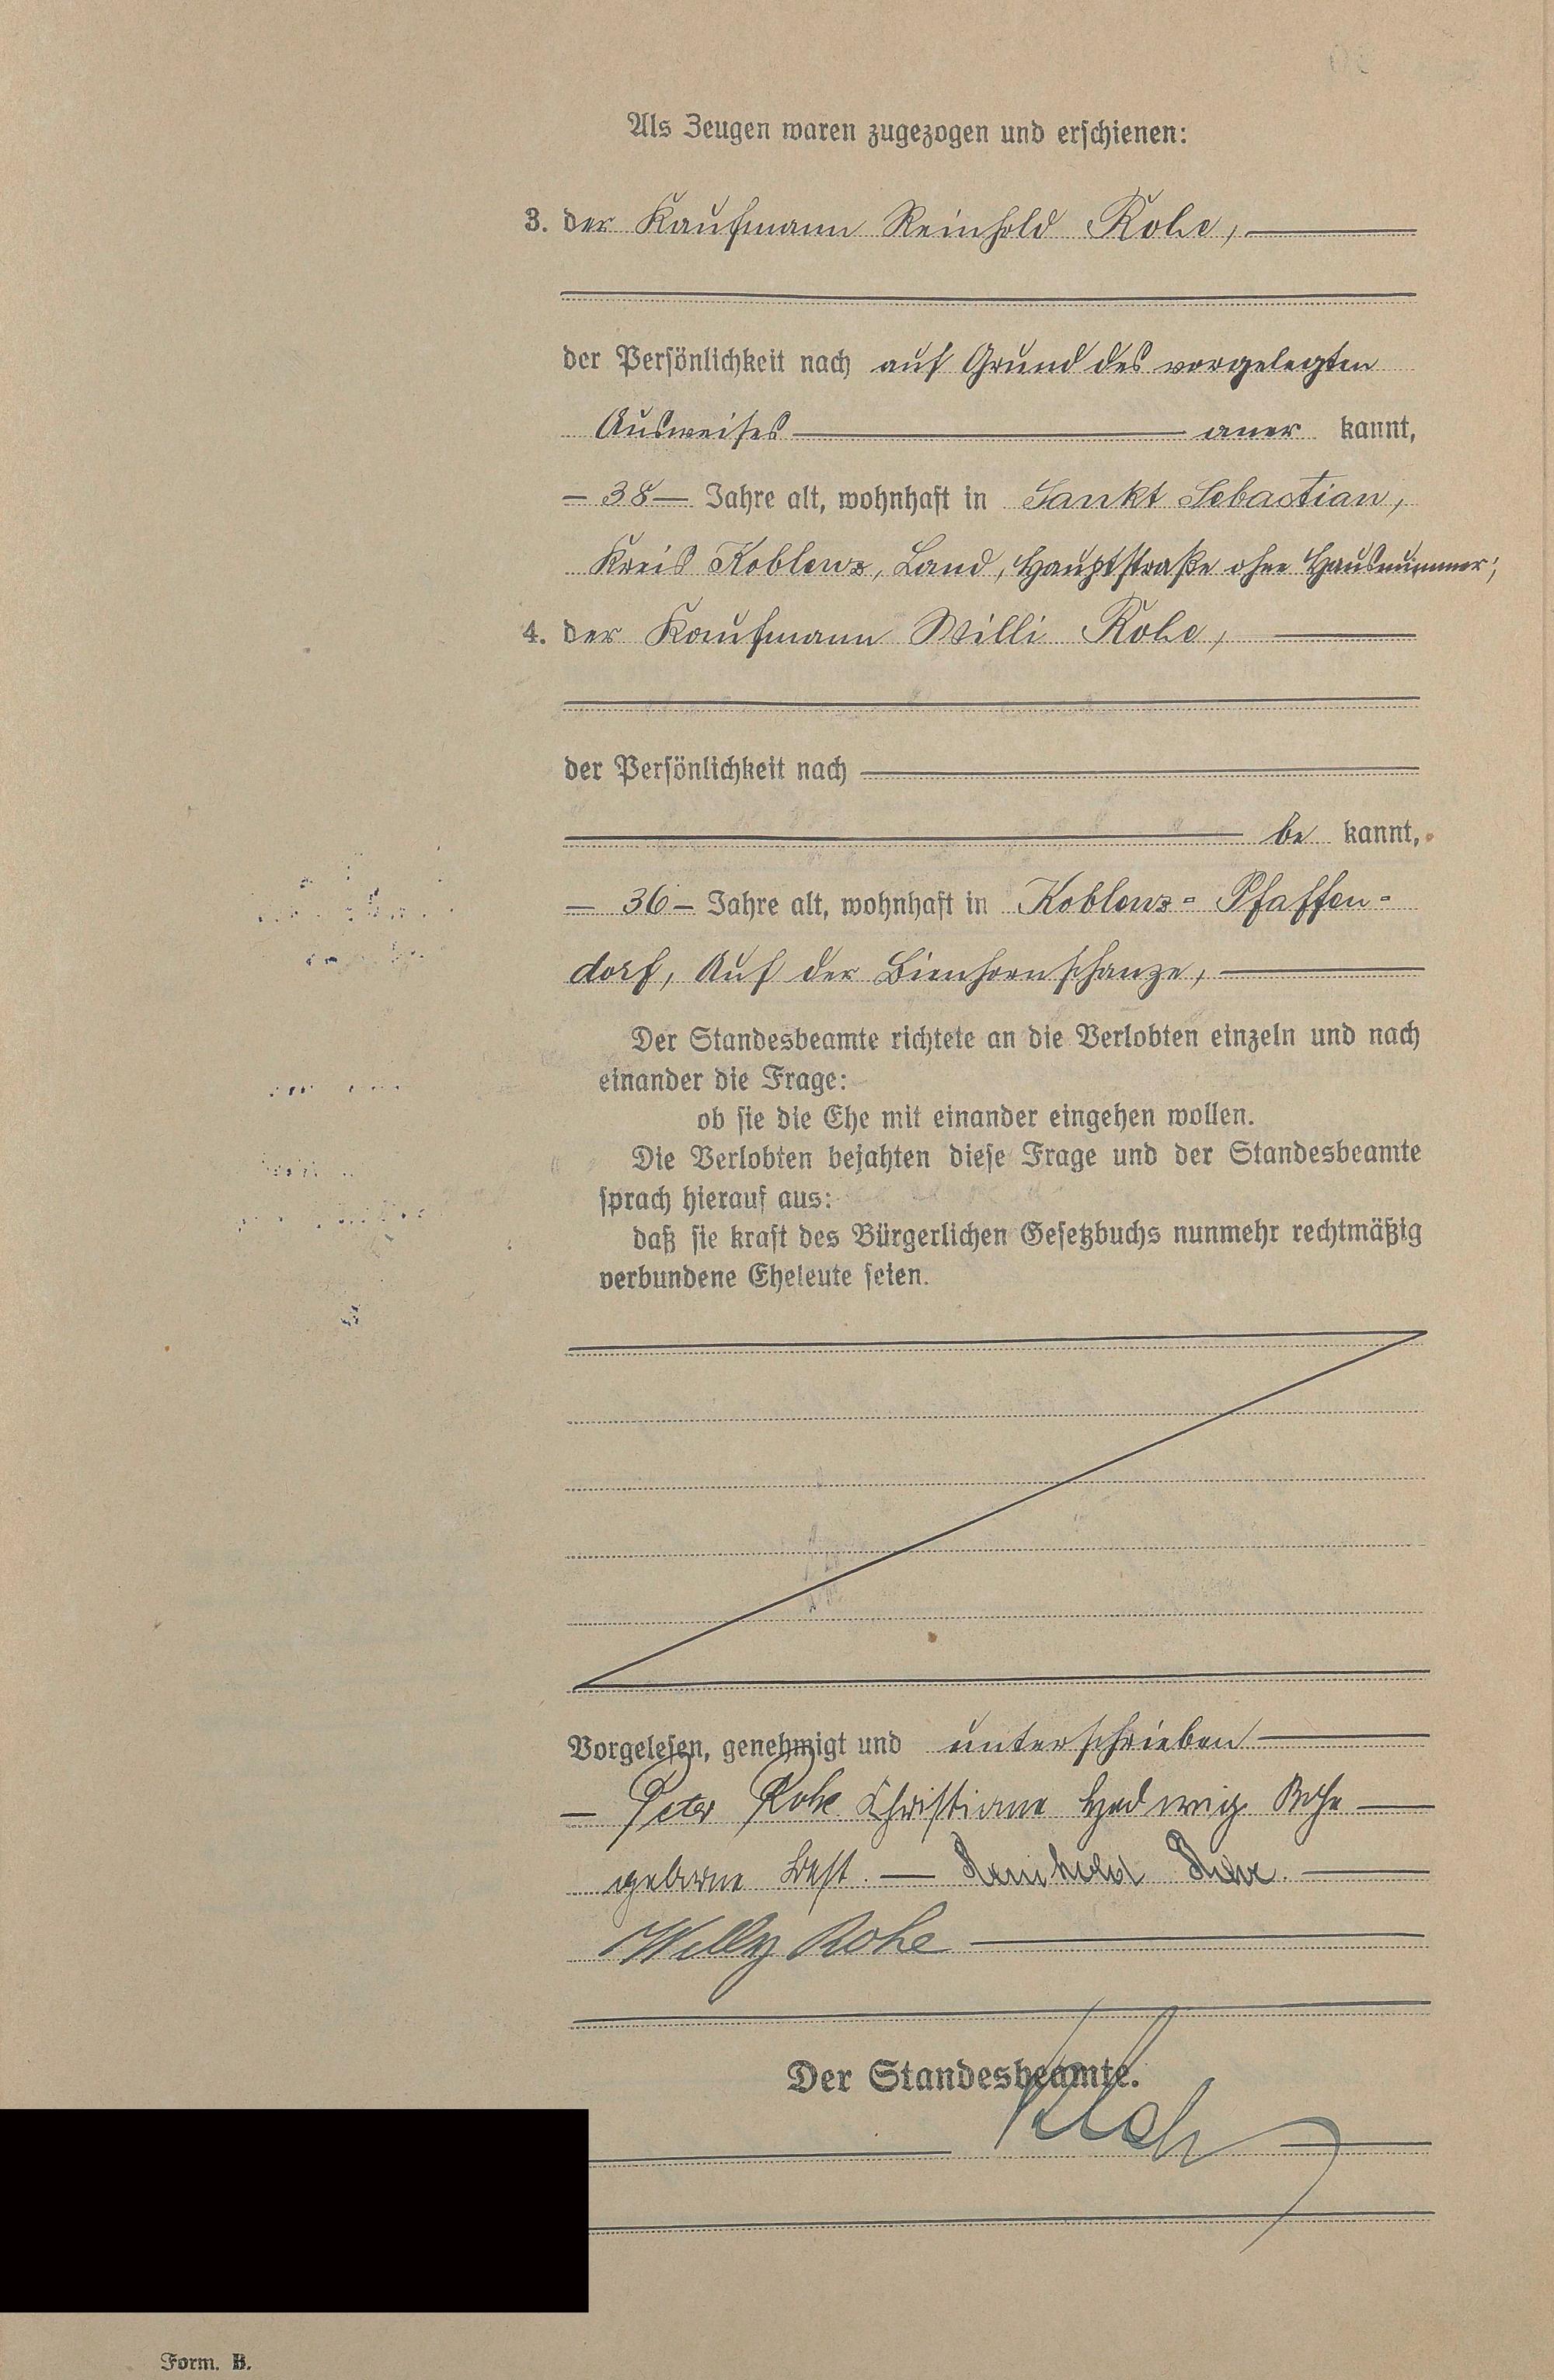 Als Zeugen waren zugezogen und erschienen:
3. der Kaufmann Reinhold Rohe,
der Persönlichkeit nach auf Grund des vorgelegten
Ausweises aner kannt,
— 38 — Jahre alt, wohnhaft in Sankt Sebastian,
Kreis Koblenz, Land, Hauptstraße ohne Hausnummer;
4. der Kaufmann Willi Rohe,
der Persönlichkeit nach
be kannt,
— 36 — Jahre alt, wohnhaft in Koblenz-Pfaffen-
dorf, Auf der Bienhornschanze,
Der Standesbeamte richtete an die Verlobten einzeln und nach
einander die Frage:
ob sie die Ehe mit einander eingehen wollen.
Die Verlobten bejahten diese Frage und der Standesbeamte
sprach hierauf aus:
daß sie kraft des Bürgerlichen Gesetzbuchs nunmehr rechtmäßig
verbundene Eheleute seien.
Vorgelesen, genehmigt und unterschrieben
— Peter Rohe Christiane Hedwig Rohe —
geborene — Reinhold Rohe.
Willy Rohe
Der Standesbeamte.
Form. B.